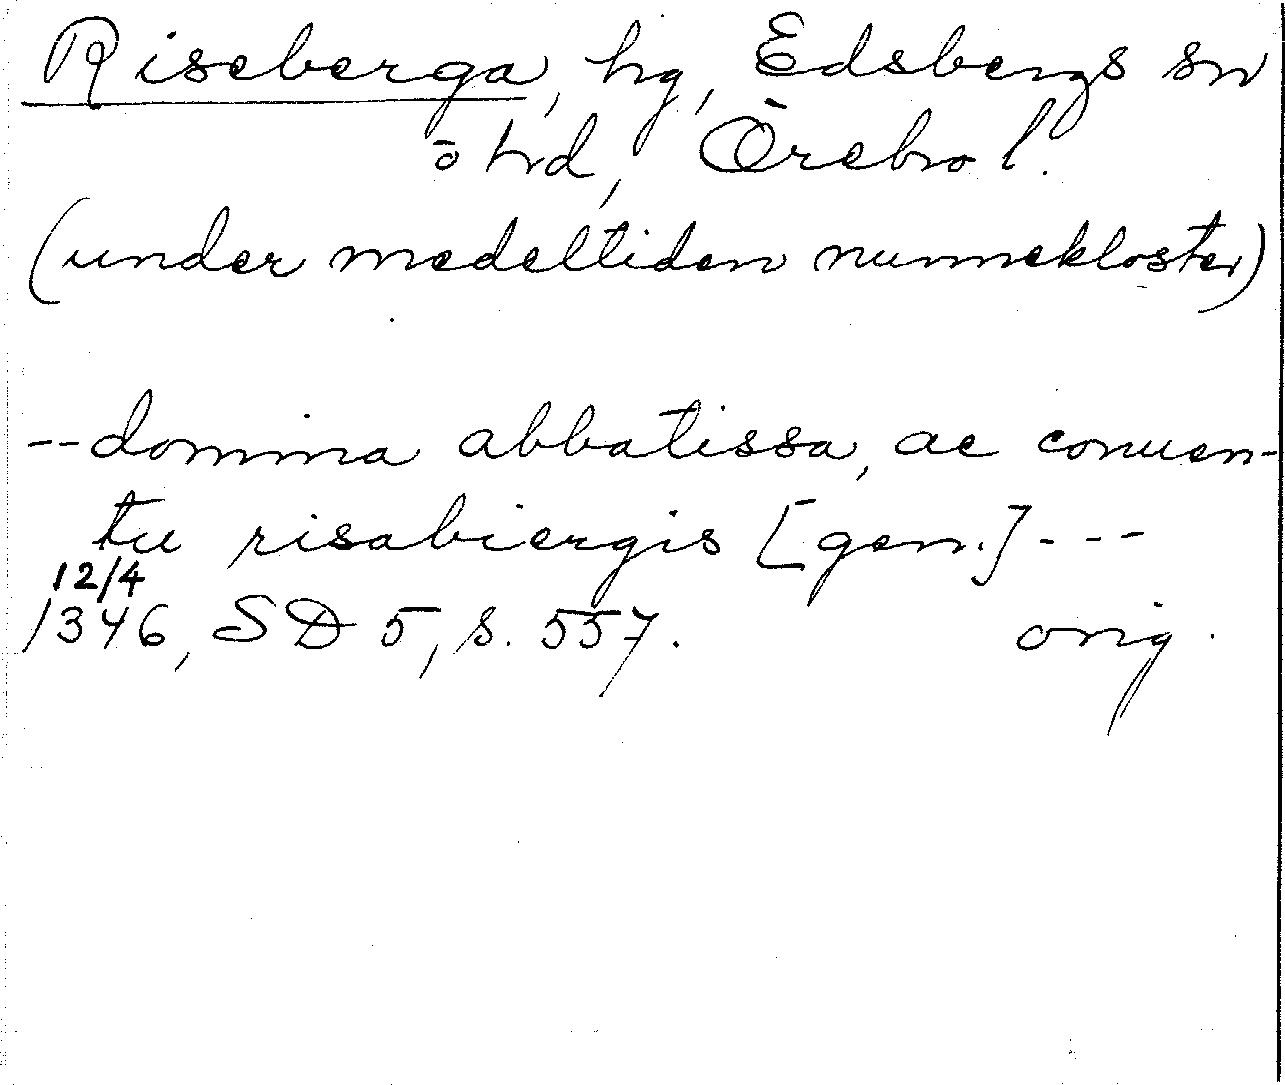 Riseberga, hg, Edsbergs sn
ö hd, Örebro l.
(under medeltiden nunnekloster)
--domina abbatissa, ac conuen-
tu risabiergis [gen.]---
12/4
1346, SD 5, s. 557. orig.